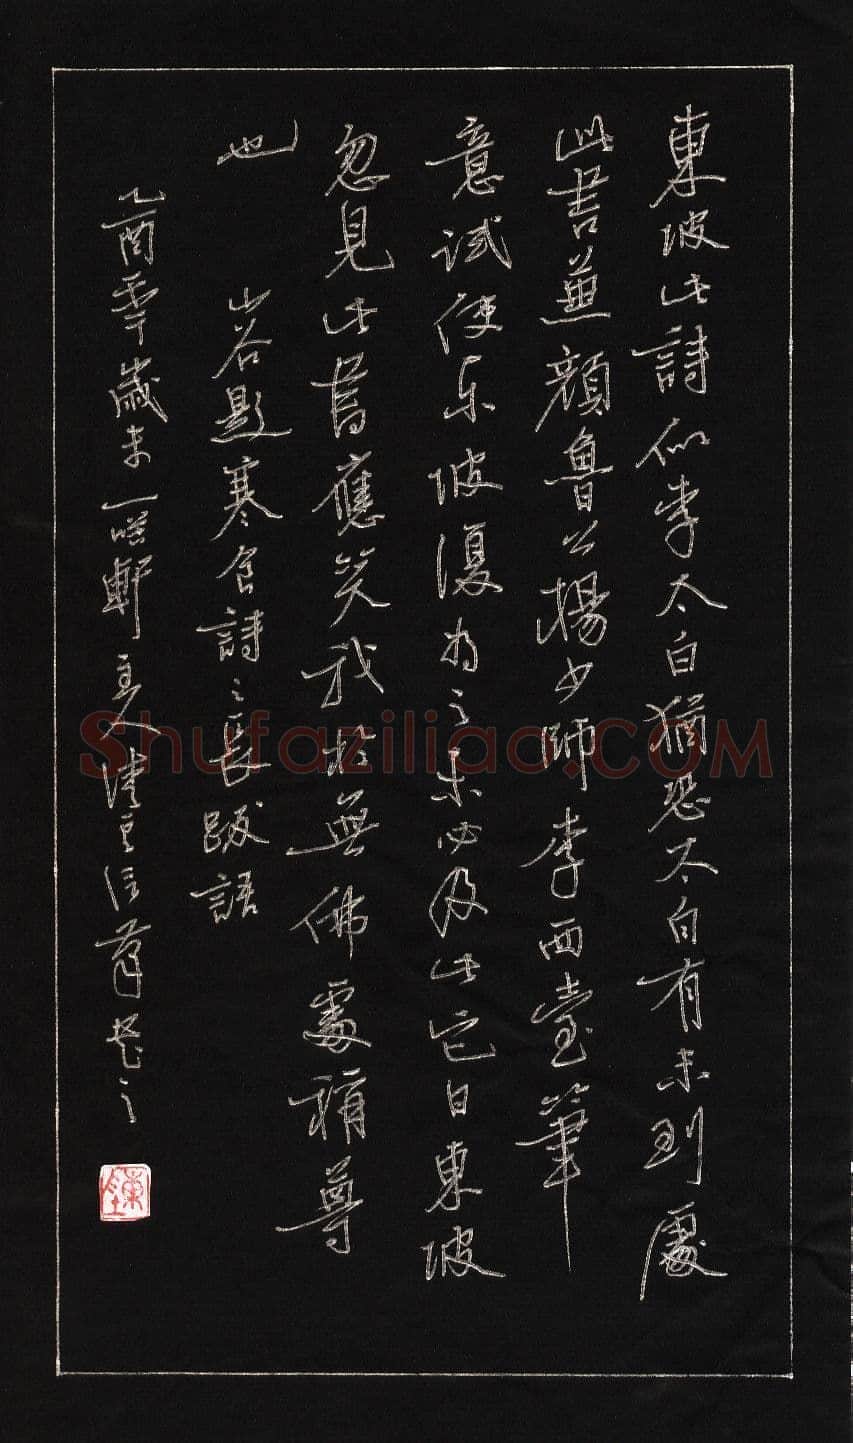 東坡此詩似李太白猶恐太白有未到處
此書兼顏魯公楊少師李西臺筆
意試使东坡復為之未必及此它日東坡
忽見此書應笑我於無佛處稱尊
也
山谷題寒食詩之長跋語
乙酉季歲末一嗒軒主人津豆信筆書之
Shufaziliao.COM